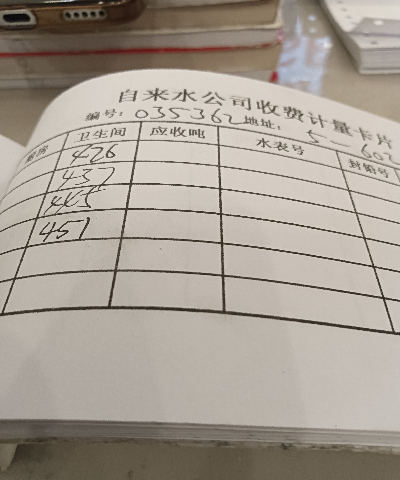 自来水公司收费计量卡片
编号：035362 地址：5—602
厨房 卫生间 应收吨 水表号 封铅号
426
437
445
451